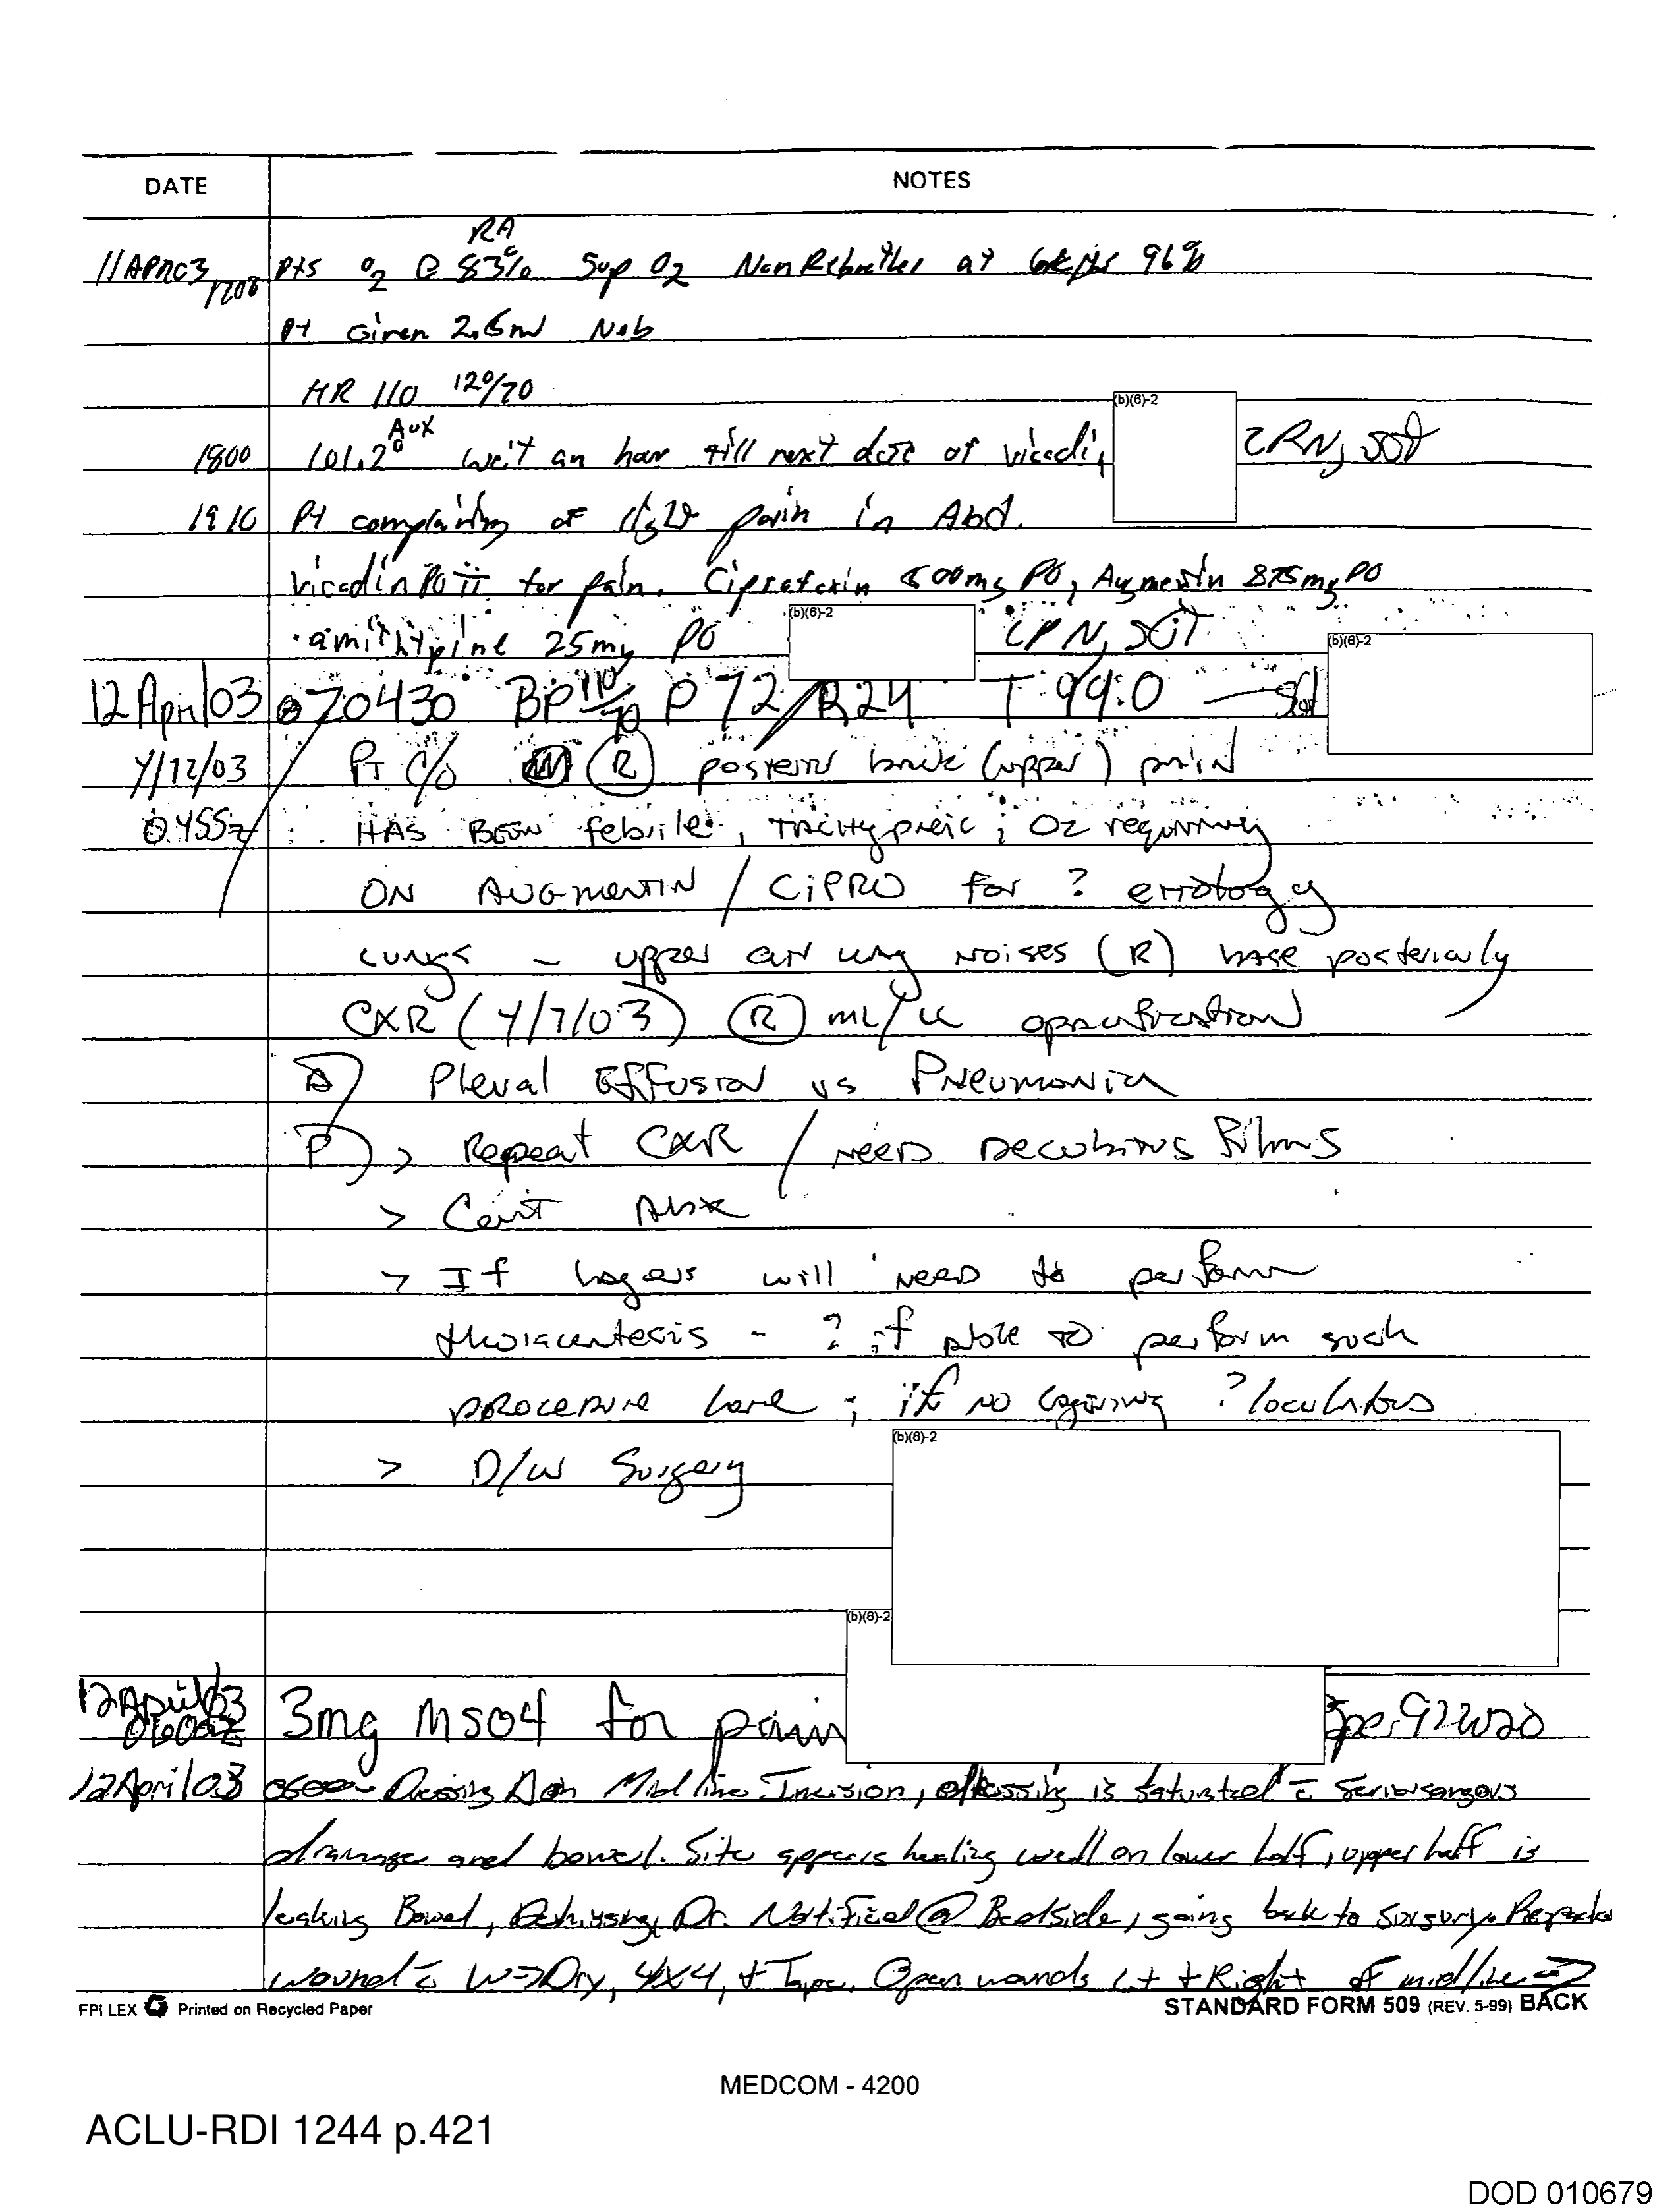 DATE NOTES
RA
11APR03 1200 Pts O2 @ 83% Sup O2 NonRebrether at 96%
Pt Given 2.5ml Neb
HR 110 120/70
(b)(6)-2
Aux
1800 101.2° wait an hour till next dose of vicodin
1910 Pt complaining of pain in Abd.
vicodin PO ii for pain. Ciprofoxin 500mg PO, Augmentin 875mg PO
(b)(6)-2
25mg PO LPN, SGT
(b)(6)-2
12 April 03 070430 BP 110/70 P 72 R24 T 99.0
4/12/03 PT C/O (R) posterior back (upper) pain
0455z HAS BEEN febrile, TACHYpneic; O2 requiring
ON AUGMENTIN / CIPRO for ? etiology
LUNGS - upper airway NOISES (R) base posteriorly
CXR (4/7/03) (R) ML/LL opacification
A) Pleural Effusion vs PNEUMONIA
P) > Repeat CXR / NEED Decubitus Films
> Con't Abx
> If layers will NEED to perform
thoracentesis - ? if able to perform such
procedure here; if NO layering ? loculations
(b)(6)-2
> D/W Surgery
(b)(6)-2
12 April 03 0600z 3mg MSO4 for pain Spc 91W20
12 April 03 0600 Dressing Midline Incision, dressing is saturated c̄ seriosangous
drainage and bowel. Site appears healing well on lower half, upper half is
leaking Bowel, Dr. Notified @ Bedside, going back to surgery. Repacked
wound c̄ W->Dry, 4X4, + Tape. Open wounds Lt + Right of midline ->
FPI LEX Printed on Recycled Paper
STANDARD FORM 509 (REV. 5-99) BACK
MEDCOM - 4200
ACLU-RDI 1244 p.421
DOD 010679